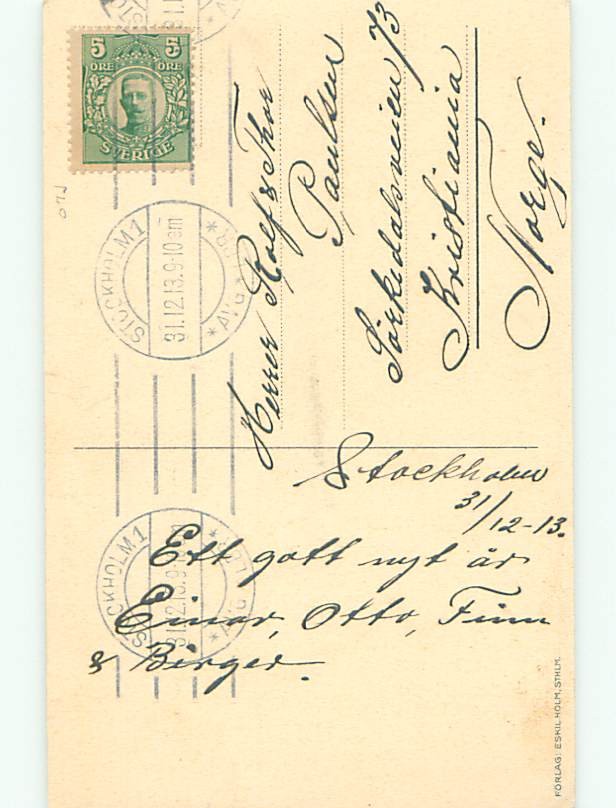 5 5
ÖRE ÖRE
SVERIGE
STOCKHOLM 1
31.12.13.9-10 em
* AVG *
Herrer Rolf & Thor
Paulsen
Sørkedalsveien 73
Kristiania
Norge.
Stockholm
31/12-13.
Ett gott nytt år
Einar, Otto, Finn
& Birger.
STOCKHOLM 1
FÖRLAG: ESKIL HOLM, STHLM.